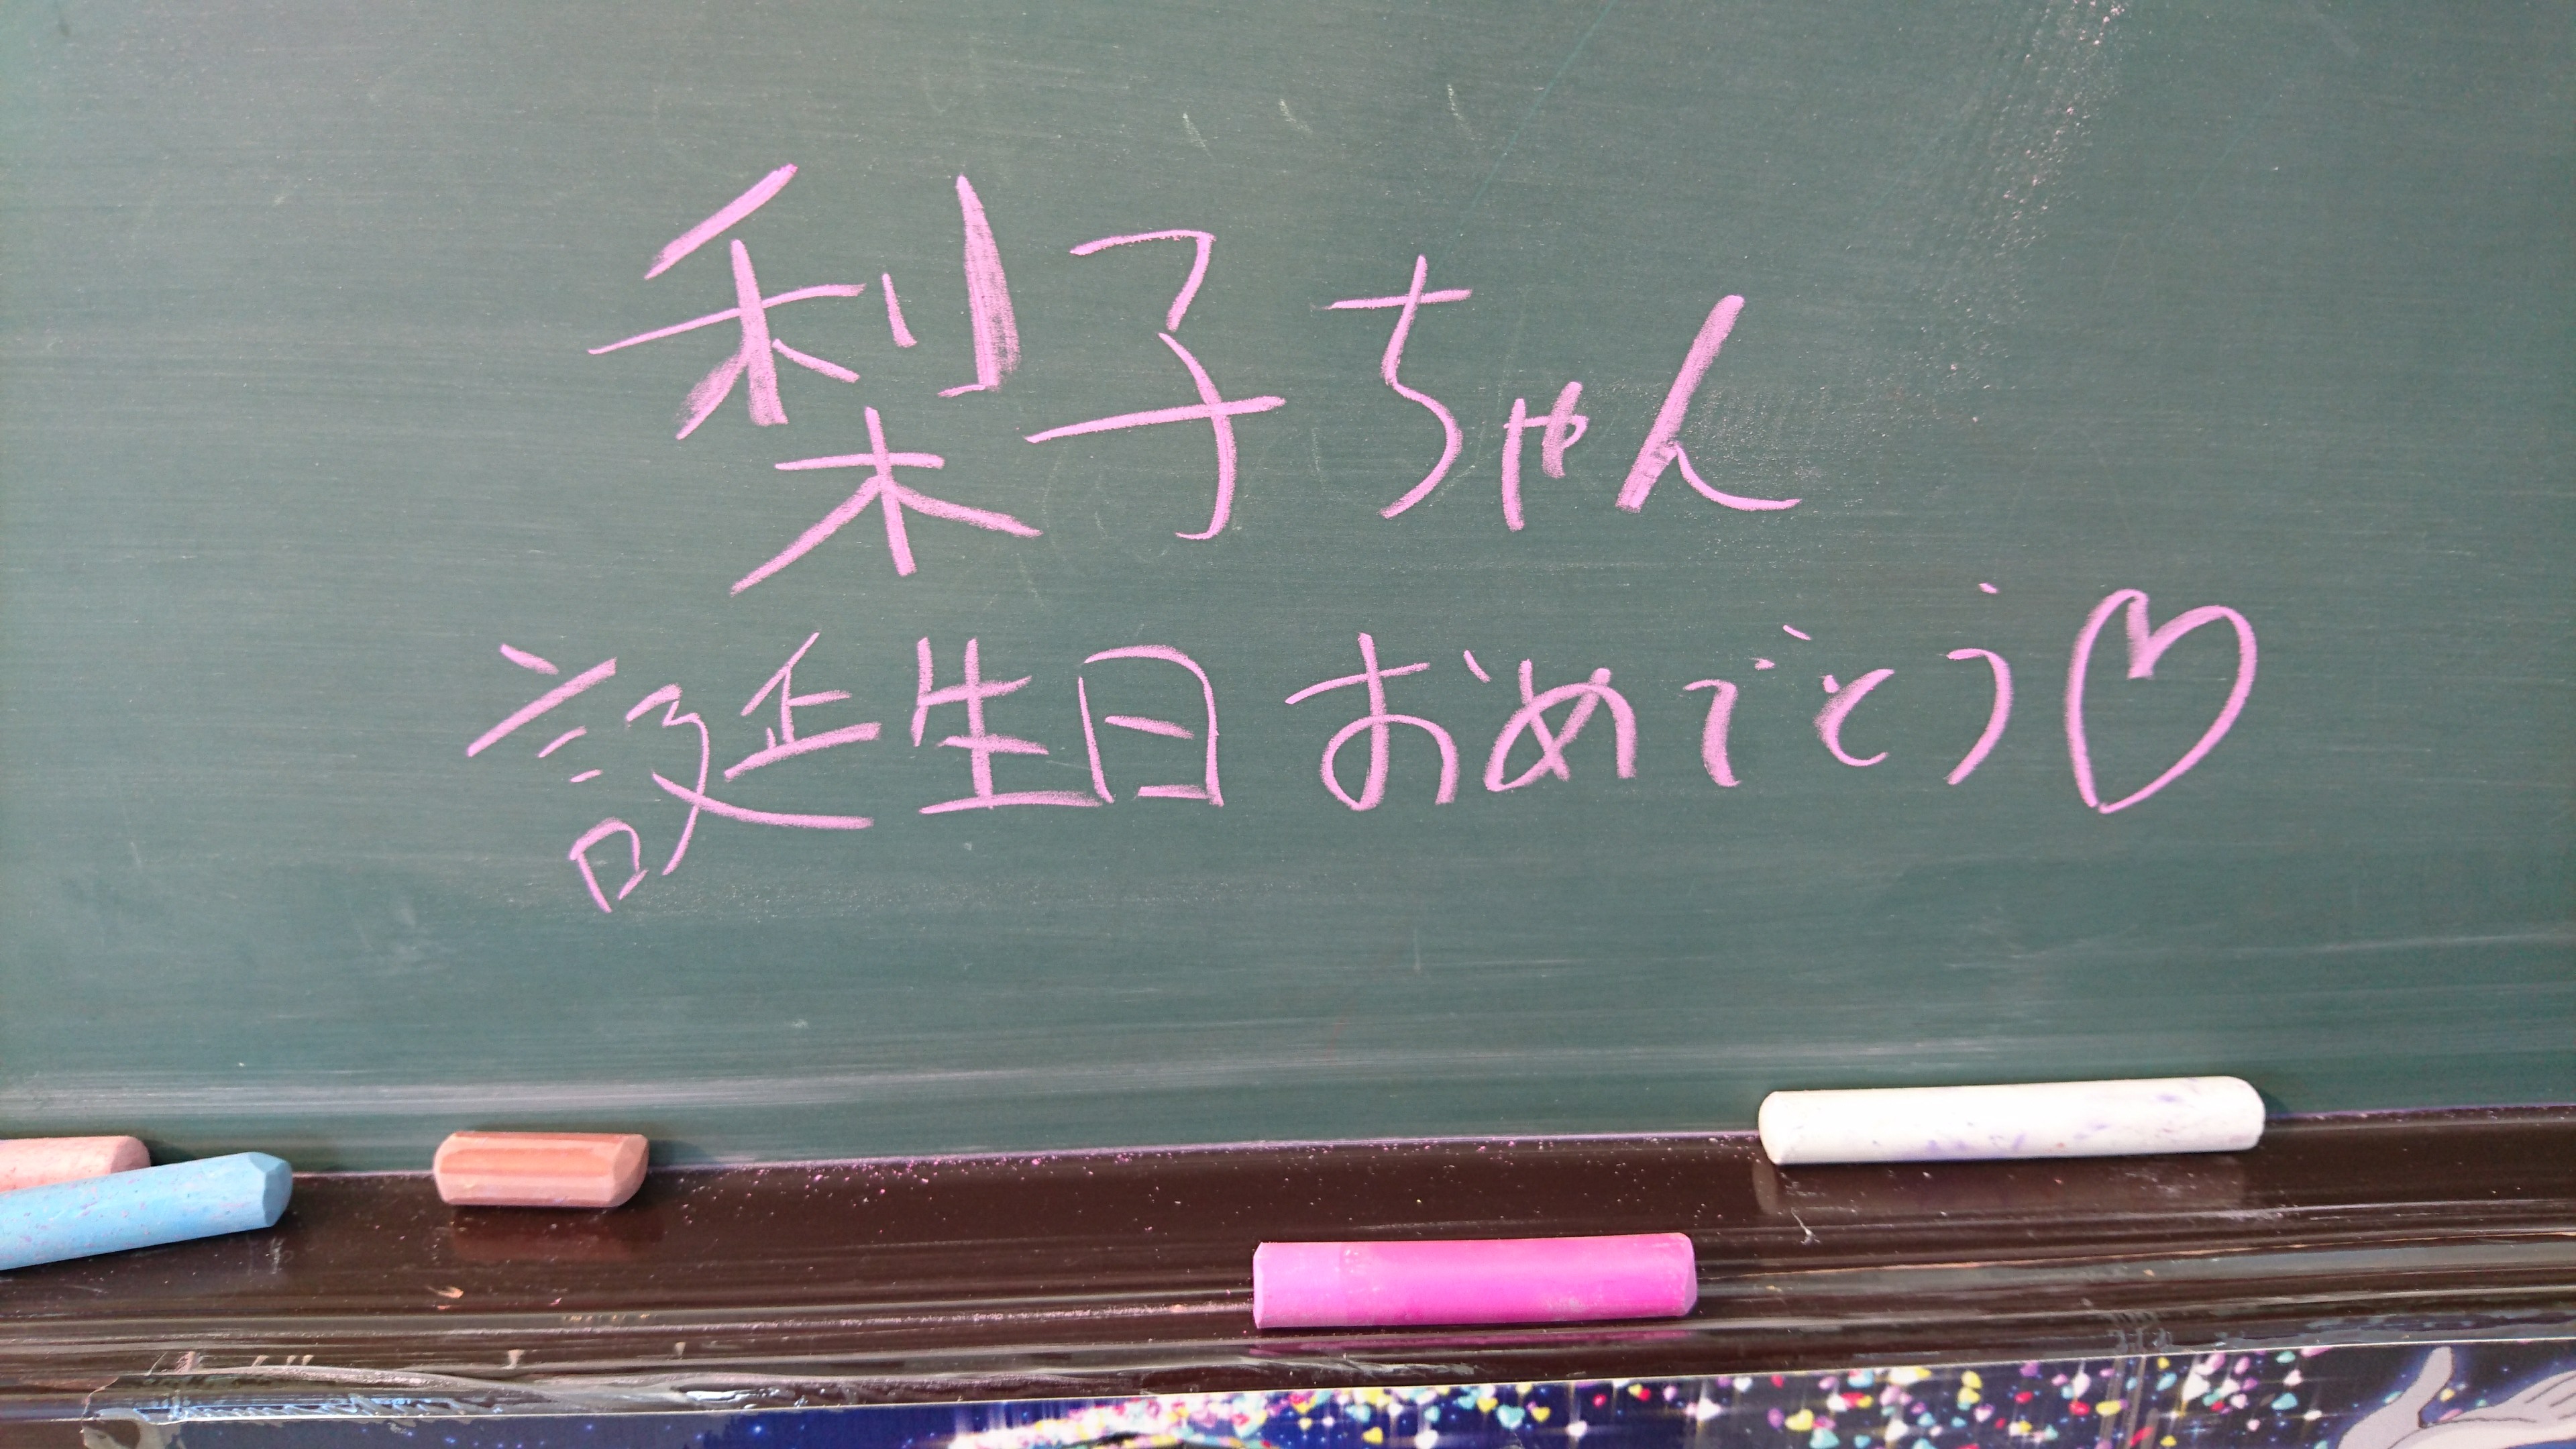 梨子ちゃん
誕生日おめでとう♡